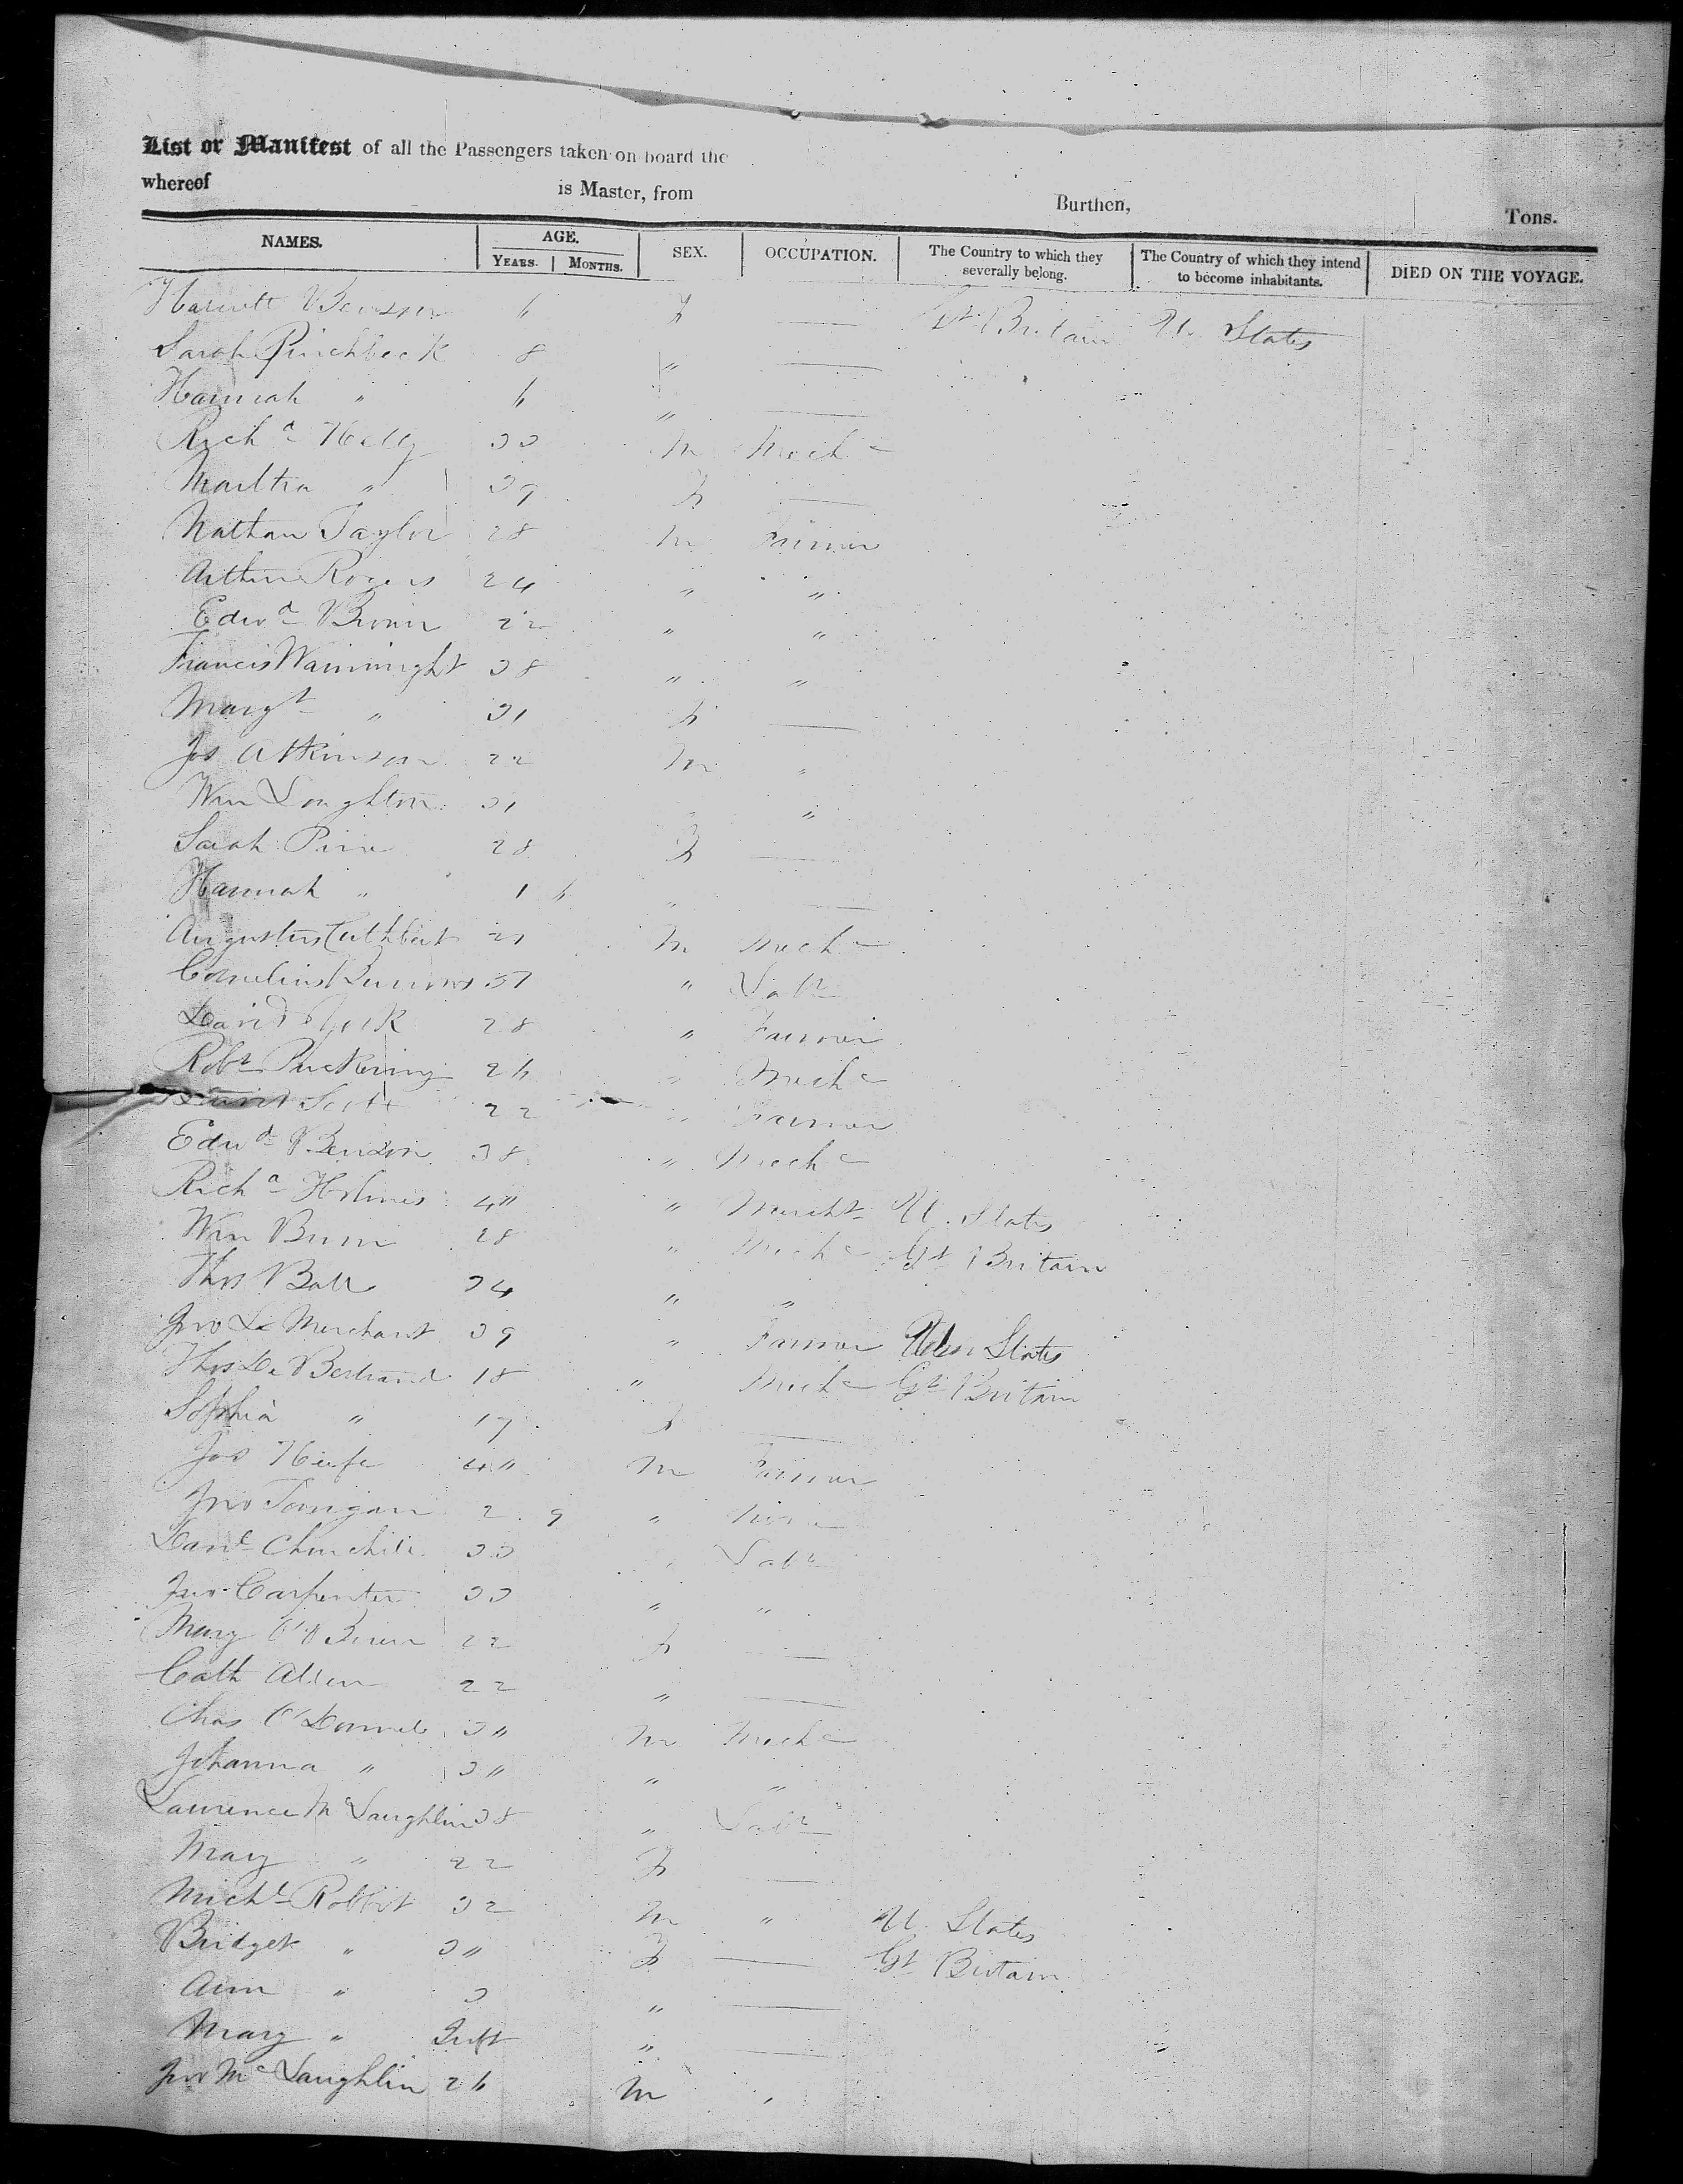 List or Manifest of all the Passengers taken on board the
whereof is Master, from Burthen, Tons.
NAMES. AGE. SEX. OCCUPATION. The Country to which they severally belong. The Country of which they intend to become inhabitants. DIED ON THE VOYAGE.
YEARS. MONTHS.
Harriett 6 F — Gt Britain U. States
Sarah Pinchbeck 8 " —
Hannah " 6 " —
Richd 33 M Mechc
Martha " 39 F —
Nathan Taylor 28 M Farmer
Arthur Rogers 24 " "
Edwd Brown 22 " "
Francis Wainwright 38 " "
Margt " 31 F —
Jos Atkinson 22 M "
Wm Loughton 31 "
Sarah 28 F —
Hannah " 1 6 " —
Augustus Cuthbert 21 M Mechc
Cornelius 37 " Labr
David 28 " Farmer
Robt Puckering 26 " Mechc
David Scott 22 " Farmer
Edwd Benson 38 " Mechc
Richd Holmes 4" " Mercht U. States
Wm 28 " Mechc Gt Britain
Thos Ball 34 " "
Jno Le Merchant 39 " Farmer States
Thos De Bertrand 18 " Mechc Gt Britain
Sophia " 17 F —
Jos 4" M Farmer
Jno 2 9 " None
Danl Churchill 33 Labr
Jno Carpenter 33 " "
Mary O'Brien 22 F —
Cath Allen 22 " —
Chas O'Donnell 3" M Mechc
Johanna " 3" " "
Laurence McLaughlin 38 " Labr
Mary " 22 F —
Michl 32 M " U. States
Bridget " 3" F — Gt Britain
Ann " 3 " —
Mary " Inft " —
Jno McLaughlin 26 M "